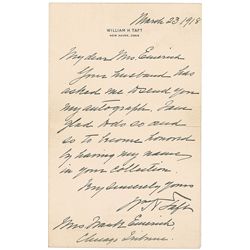 March 23 1918
WILLIAM H. TAFT
NEW HAVEN, CONN
My dear Mrs. Emerich
Your husband has
asked me to send you
my autograph. I am
glad to do so and
so to become honored
by having my name
in your collection.
Very sincerely yours
Wm H Taft
Mrs Frank Emerich
Chicago Tribune